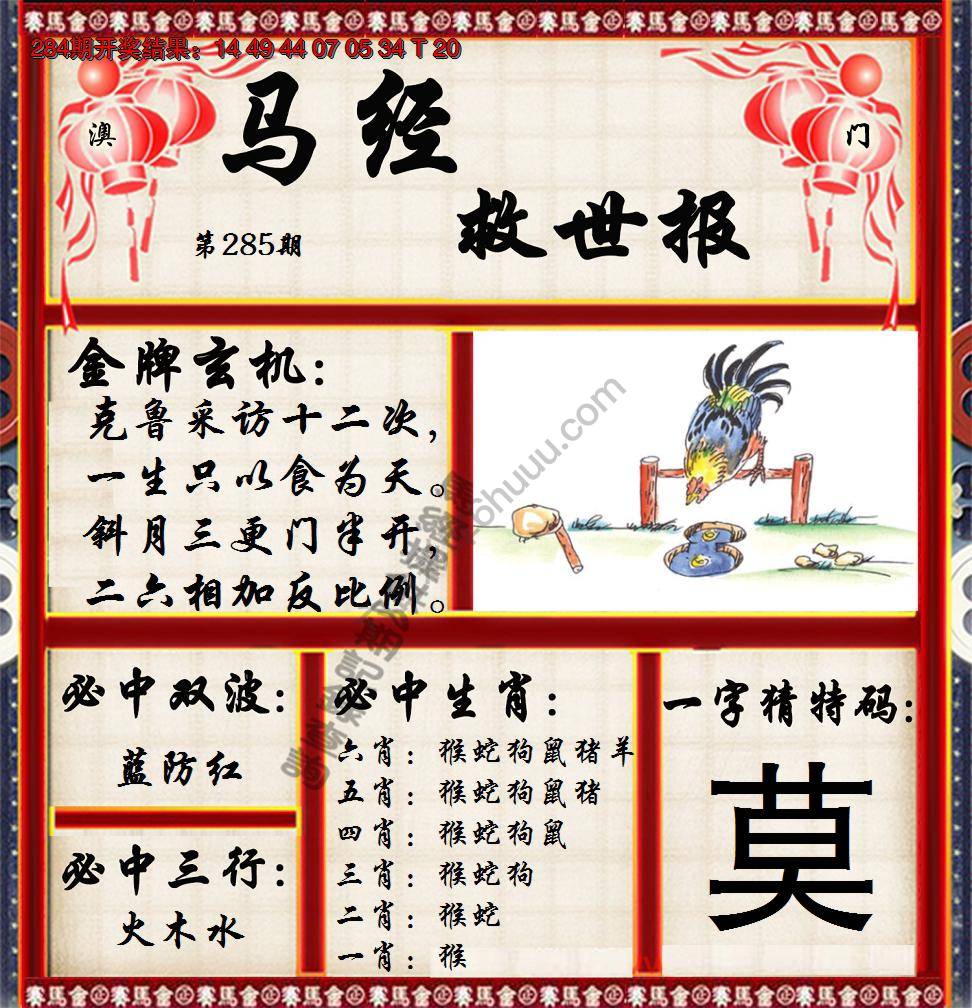 284期开奖结果：14 49 44 07 05 34 T 20
澳
门
马经
救世报
第285期
金牌玄机：
克鲁采访十二次，
一生只以食为天。
斜月三更门半开，
二六相加反比例。
必中双波：
蓝防红
必中三行：
火木水
必中生肖：
六肖：猴蛇狗鼠猪羊
五肖：猴蛇狗鼠猪
四肖：猴蛇狗鼠
三肖：猴蛇狗
二肖：猴蛇
一肖：猴
一字猜特码：
莫